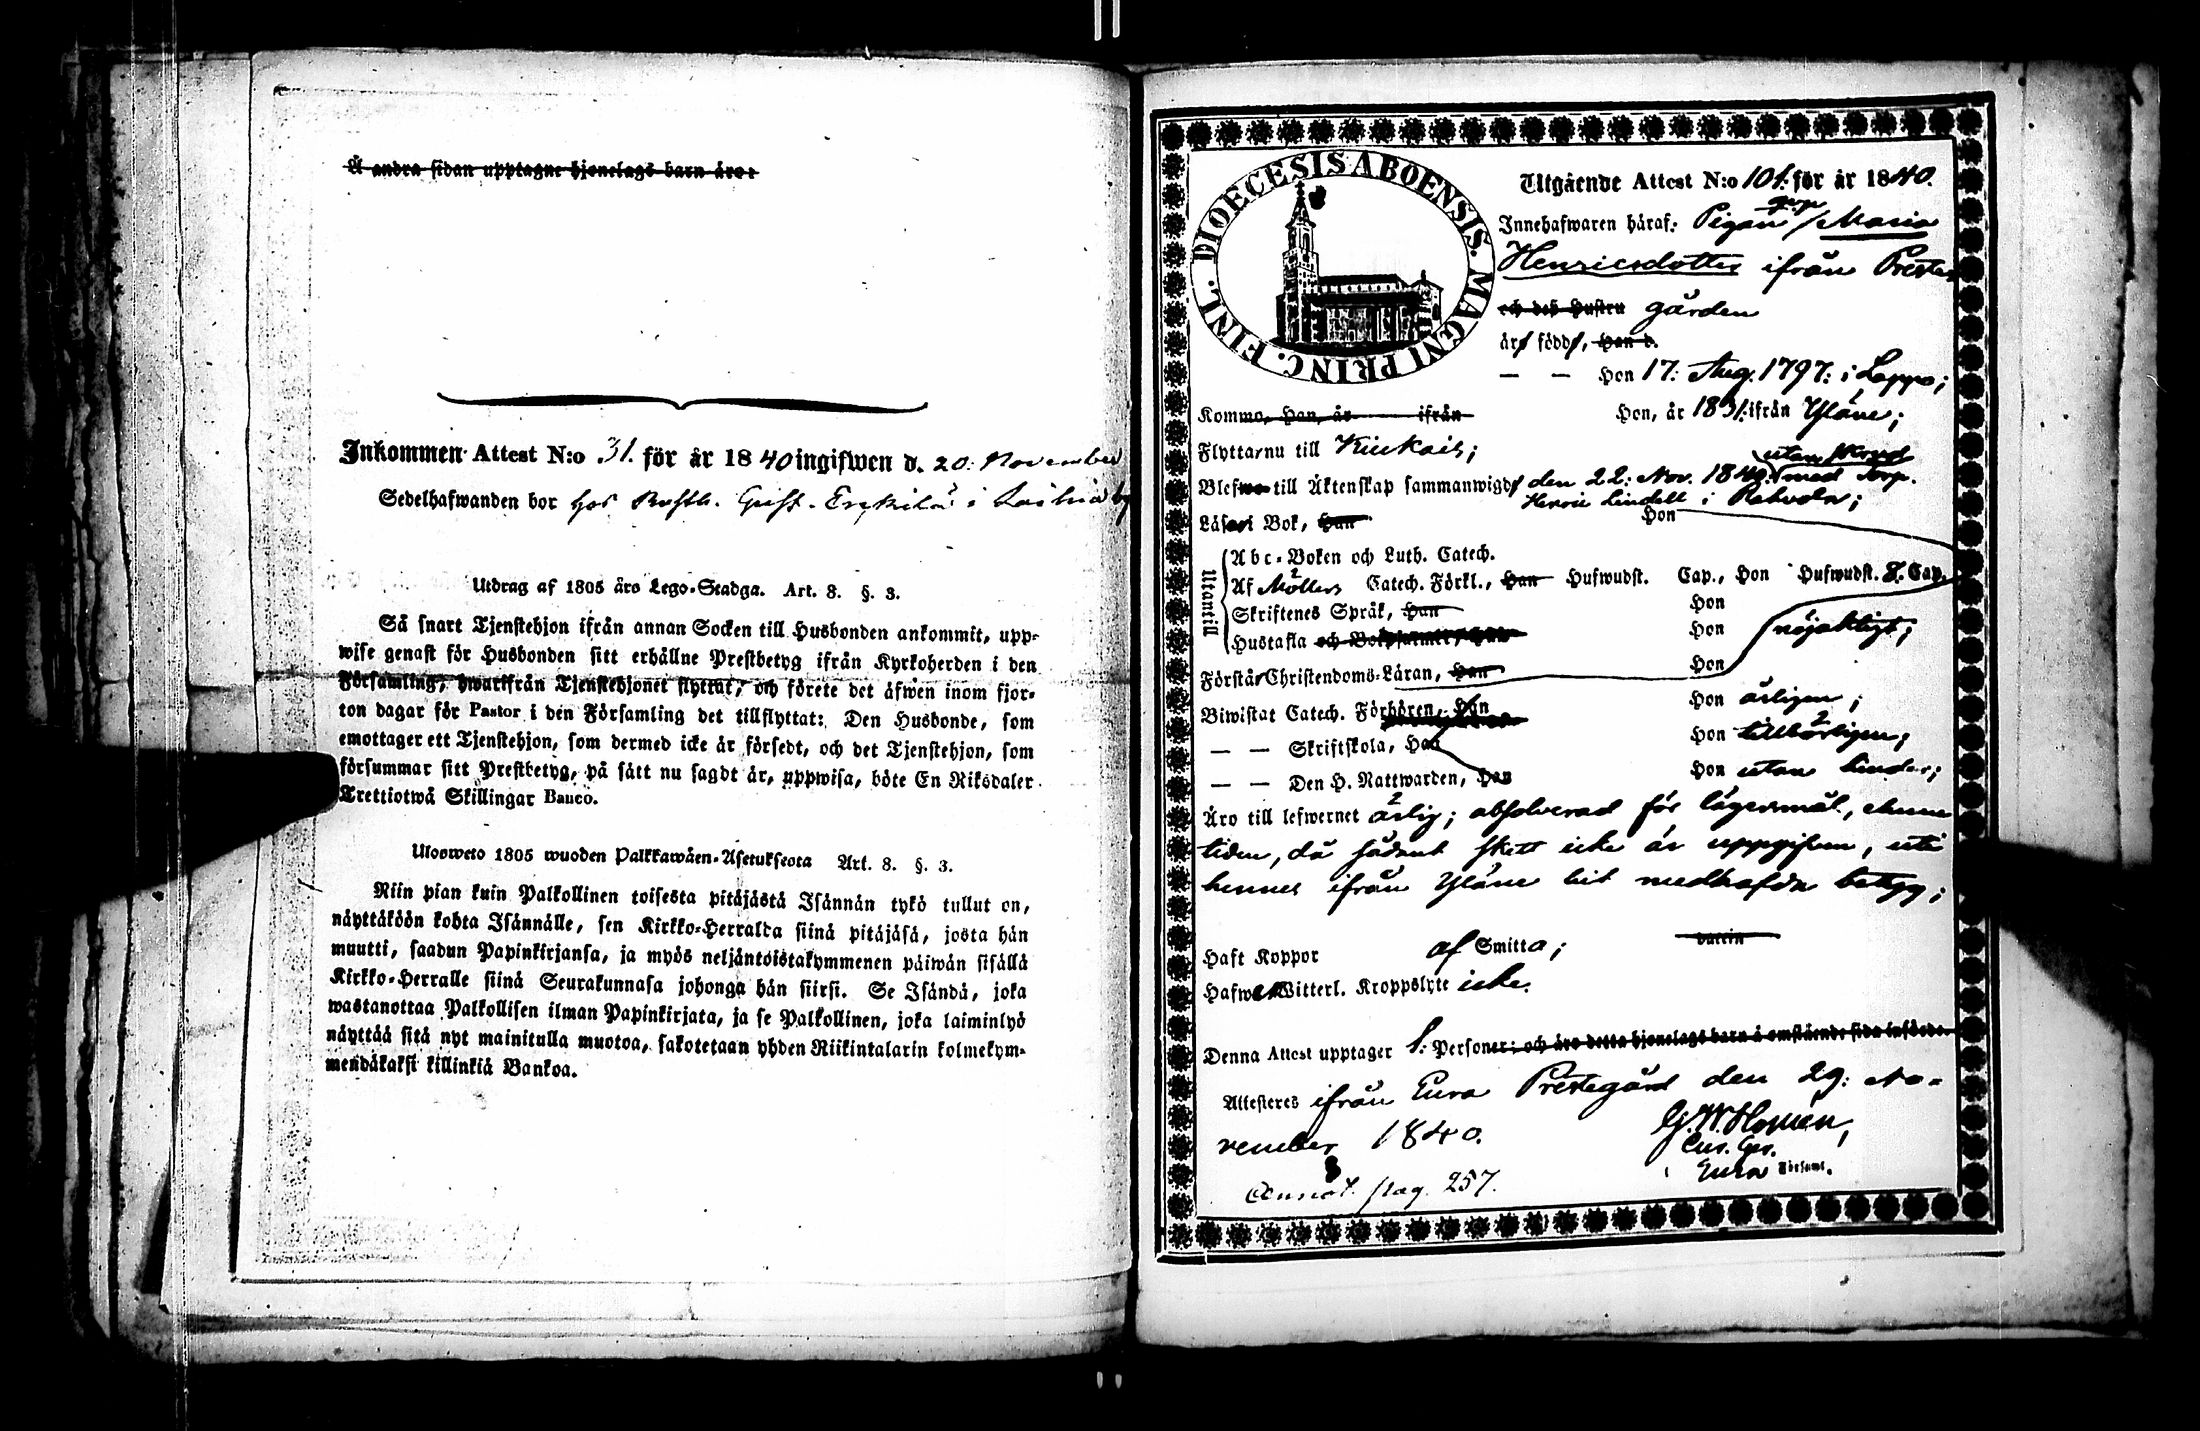 Å andra sidan upptagne hjonelags barn äro:
Inkommen Attest N:o 31. för år 1840 ingifwen d. 20. November
Sedelhafwanden bor hos Gust. i
Utdrag af 1805 års Lego-Stadga. Art. 8. §. 3.
Så snart Tjenstehjon ifrån annan Socken till Husbonden ankommit, upp-
wise genast för Husbonden sitt erhållne Prestbetyg ifrån Kyrkoherden i den
Församling, hwarifrån Tjenstehjonet flyttat, och förete det äfwen inom fjor-
ton dagar för Pastor i den Församling det tillflyttat: Den Husbonde, som
emottager ett Tjenstehjon, som dermed icke är försedt, och det Tjenstehjon, som
försummar sitt Prestbetyg, på sätt nu sagdt är, uppwisa, böte En Riksdaler
Trettiotwå Skillingar Banco.
Ulosweto 1805 wuoden Palkkawäen-Asetuksesta Art. 8. §. 3.
Niin pian kuin Palkollinen toisesta pitäjästä Isännän tykö tullut on,
näyttäköön kohta Isännälle, sen Kirkko-Herralda siinä pitäjäsä, josta hän
muutti, saadun Papinkirjansa, ja myös neljäntoistakymmenen päiwän sisällä
Kirkko-Herralle siinä Seurakunnasa johonga hän siirsi. Se Isändä, joka
wastanottaa Palkollisen ilman Papinkirjata, ja se Palkollinen, joka laiminlyö
näyttää sitä nyt mainitulla muotoa, sakotetaan yhden Riikintalarin kolmekym-
mendäkaksi killinkiä Bankoa.
DIOECESIS ABOENSIS. MAGNI PRINC. FINL.
Utgående Attest N:o 101. för år 1840.
Innehafwaren häraf: Pigan Maria
Henricsdotter ifrån Preste
och deß Hustru gården
äro födde, Han d.
— — Hon 17: Aug. 1797: i Loppo;
Kommo, Han, år ifrån Hon, år 1831. ifrån Yläne;
Flytta nu till Kiukais;
utan
Blefwo till Äktenskap sammanwigde den 22: Nov. 1840. med Torp.
Henric Lindell i
Läsa i Bok, Han Hon
Utantill
Abc-Boken och Luth. Catech.
Af Möllers Catech. Förkl., Han Hufwudst. Cap., Hon Hufwudst. 8. Cap.
Skriftenes Språk, Han Hon
Hustafla och Hon nöjaktigt;
Förstår Christendoms-Läran, Han Hon
Biwistat Catech. Förhören, Han Hon årligen;
— — Skriftskola, Han Hon tillbörligen;
— — Den H. Nattwarden, Han Hon utan hinder;
Äro till lefwernet ärlig; absolverad för lägersmål, ehuru
tiden, då sådant skett icke är uppgifven, uti
hennes ifrån Yläne hit medhafda betyg;
Haft Koppor af Smitta; vaccin
Hafwa Witterl. Kroppslyte icke.
Denna Attest upptager 1. Personer; och äro detta hjonelags barn å omstående sida införde.
Attesteres ifrån Eura Prestegård den 29: No-
vember 1840.
G. W. Homén,
Eura Församl.
Annot. pag. 257.